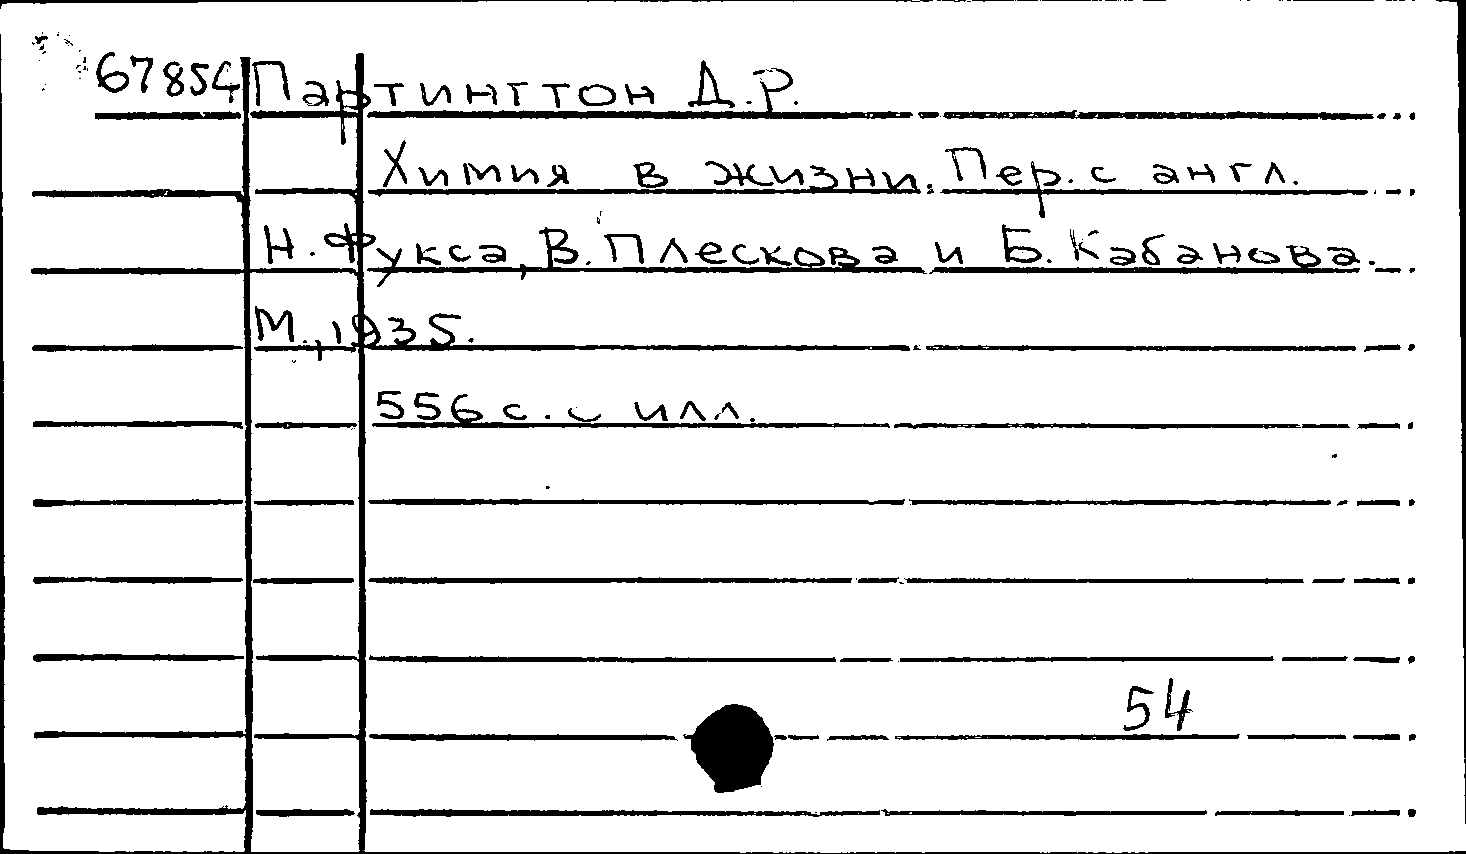 67854 Партингтон Д.Р.
Химия в жизни. Пер. с англ.
Н. Фукса, В. Плескова и Б. Кабанова.
М., 1935.
556 с. с илл.
54